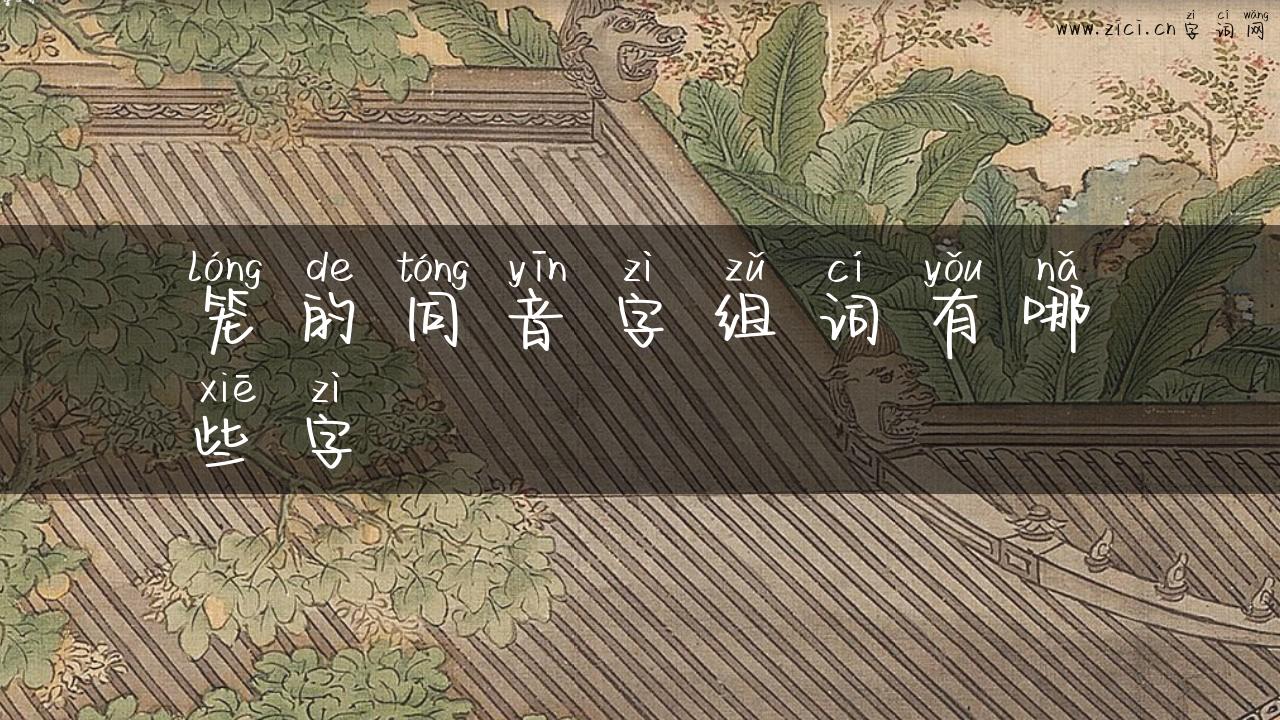 zì cí wǎng
www.zici.cn 字 词 网
lóng de tóng yīn zì zǔ cí yǒu nǎ
笼 的 同 音 字 组 词 有 哪
xiē zì
些 字